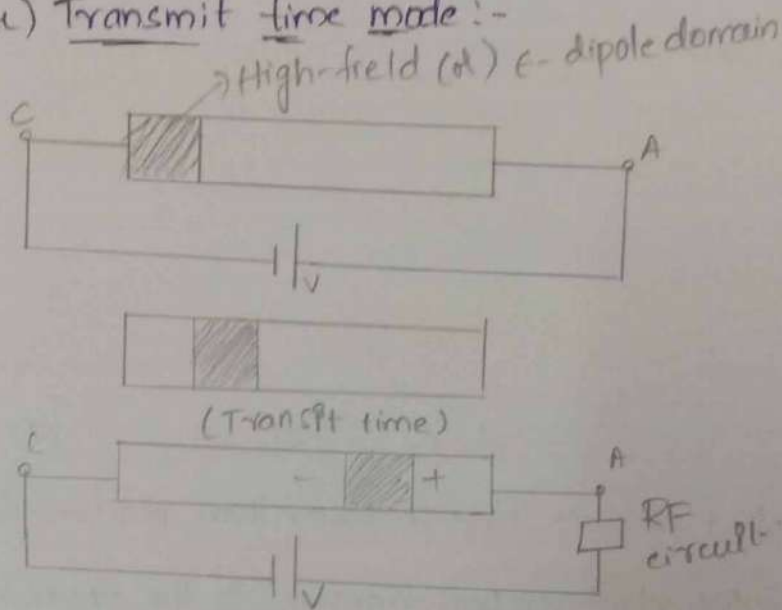 i) Transmit time mode :-
High-field (or) ← dipole domain
C
A
V
(Transit time)
C
A
- +
RF
circuit
V